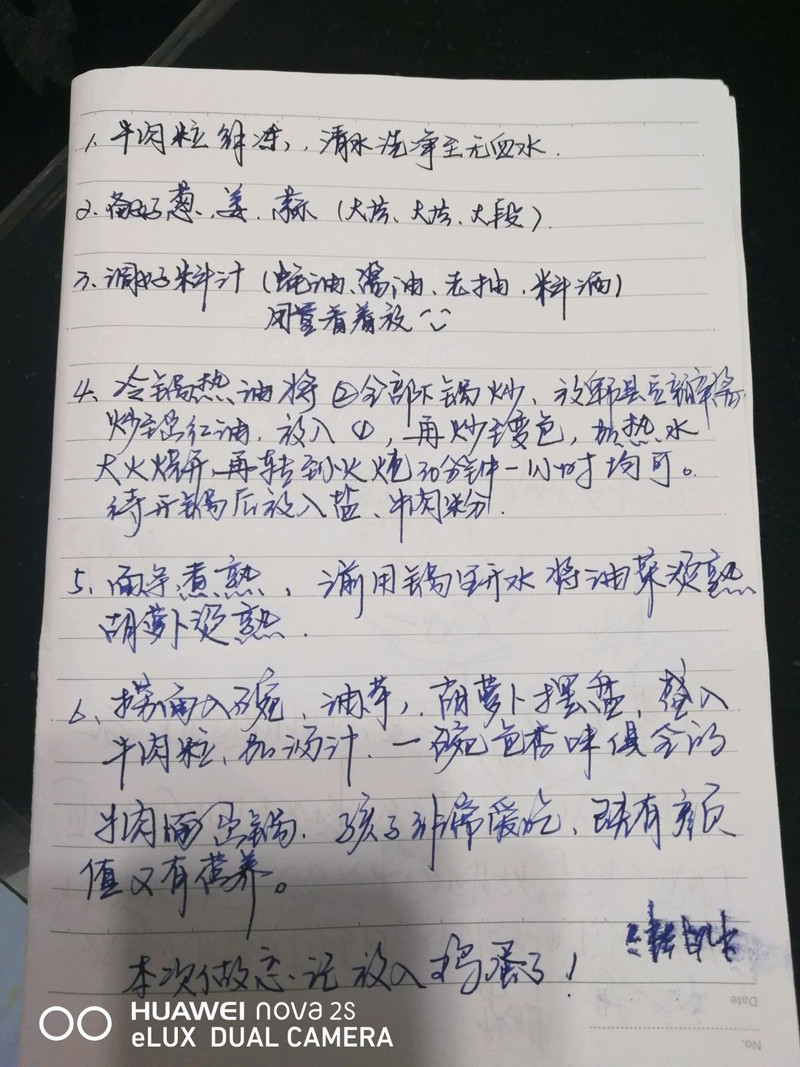 1、牛肉粒解冻,清水洗净至无血水.
2、备好葱、姜、蒜(大片、大片、大段)
3、调好料汁(蚝油、酱油、老抽、料酒)
用量看着放
4、冷锅热油将②全部下锅炒、放郫县豆瓣酱
炒至出红油,放入①,再炒至变色,加热水
大火烧开,再转到小火炖30分钟一1小时均可。
待开锅后放入盐、牛肉粉.
5、面条煮熟,用锅里开水将油菜烫熟
胡萝卜烫熟.
6、捞面入碗、油菜,胡萝卜摆盘,入
牛肉粒,加汤汁.一碗色香味俱全的
牛肉面出锅.孩子非常爱吃、既有颜
值又有营养。
本次做忘记放入鸡蛋了!
Date
No.
HUAWEI nova 2s
eLUX DUAL CAMERA